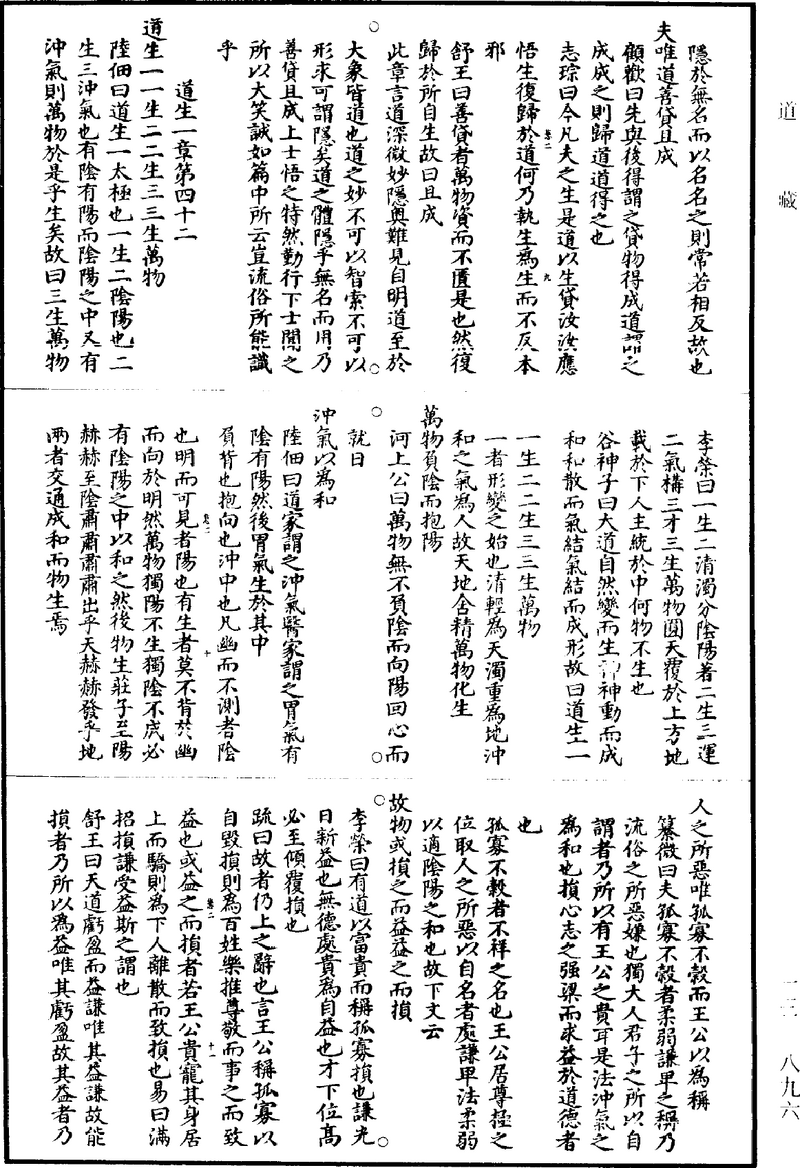 道藏
隱於無名而以名名之則常若相反故也
夫唯道善貸且成
顧歡曰先與後得謂之貸物得成道謂之
成成之則歸道道得之也
志琮曰今凡夫之生是道以生貸汝汝應
悟生復歸於道何乃執生為生而不反本
邪
舒王曰善貸者萬物資而不匱是也然復
歸於所自生故曰且成
此章言道深微妙隱奧難見自明道至於
大象皆道也道之妙不可以智索不可以
形求可謂隱矣道之體隱乎無名而用乃
善貸且成上士悟之特然勤行下士聞之
所以大笑誠如篇中所云豈流俗所能識
乎
道生一章第四十二
道生一一生二二生三三生萬物
陸佃曰道生一太極也一生二陰陽也二
生三沖氣也有陰有陽而陰陽之中又有
沖氣則萬物於是乎生矣故曰三生萬物
李榮曰一生二清濁分陰陽著二生三運
二氣構三才三生萬物圓天覆於上方地
載於下人主統於中何物不生也
谷神子曰大道自然變而生神神動而成
和和散而氣結氣結而成形故曰道生一
一生二二生三三生萬物
一者形變之始也清輕為天濁重為地沖
和之氣為人故天地含精萬物化生
萬物負陰而抱陽
河上公曰萬物無不負陰而向陽回心而
就日
沖氣以為和
陸佃曰道家謂之沖氣醫家謂之胃氣有
陰有陽然後胃氣生於其中
負背也抱向也沖中也凡幽而不測者陰
也明而可見者陽也有生者莫不背於幽
而向於明然萬物獨陽不生獨陰不成必
有陰陽之中以和之然後物生莊子至陽
赫赫至陰肅肅肅肅出乎天赫赫發乎地
兩者交通成和而物生焉
人之所惡唯孤寡不穀而王公以為稱
纂微曰夫孤寡不穀者柔弱謙卑之稱乃
流俗之所惡嫌也獨大人君子之所以自
謂者乃所以有王公之貴耳是法沖氣之
為和也損心志之强梁而求益於道德者
也
孤寡不穀者不祥之名也王公居尊極之
位取人之所惡以自名者處謙卑法柔弱
以適陰陽之和也故下文云
故物或損之而益益之而損
李榮曰有道以富貴而稱孤寡損也謙光
日新益也無德處貴為自益也才下位高
必至傾覆損也
疏曰故者仍上之辭也言王公稱孤寡以
自毀損則為百姓樂推尊敬而事之而致
益也或益之而損者若王公貴寵其身居
上而驕則為下人離散而致損也易曰滿
招損謙受益斯之謂也
舒王曰天道虧盈而益謙唯其益謙故能
損者乃所以為益唯其虧盈故其益者乃
一三
八九六